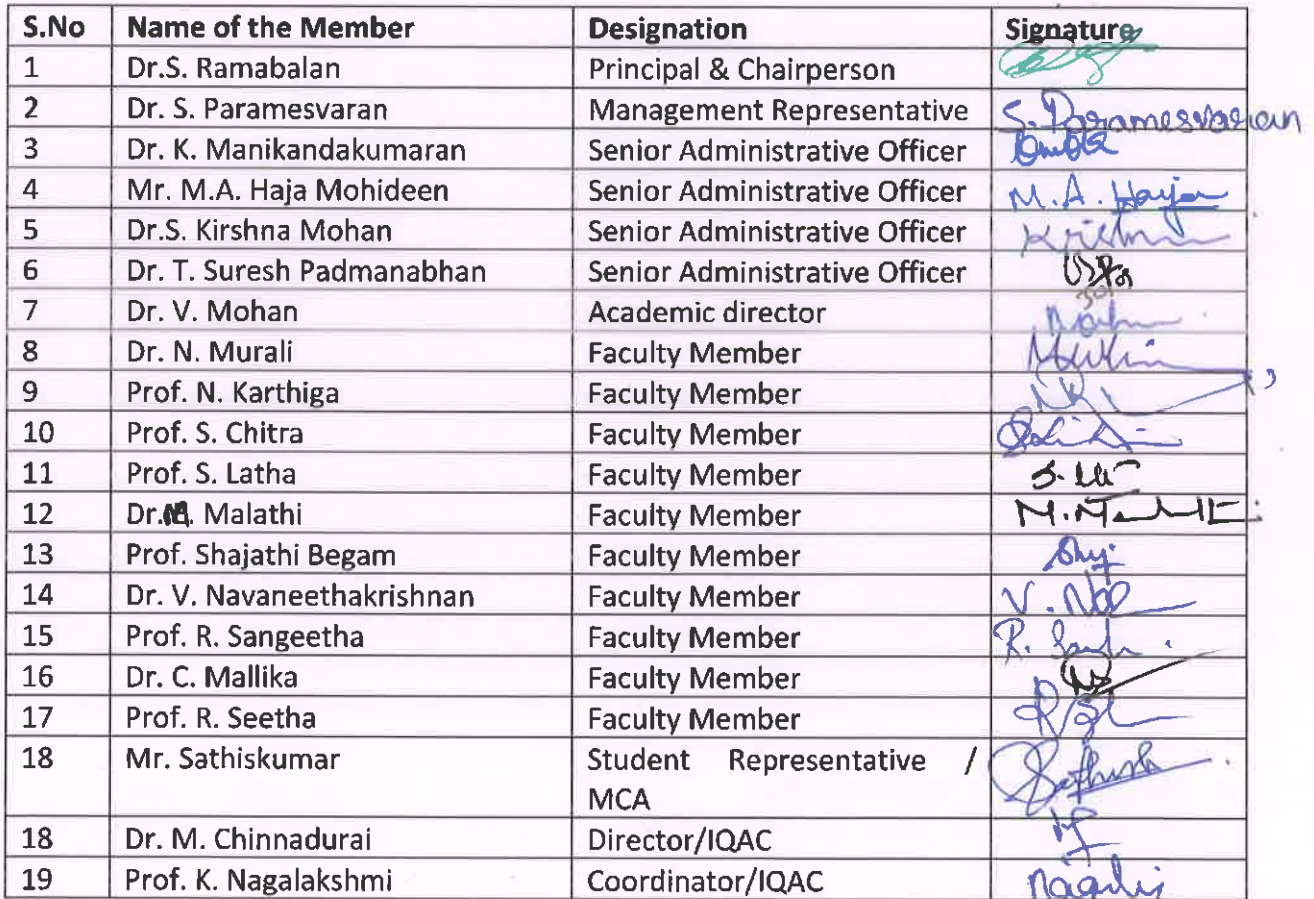 S.No Name of the Member Designation Signature
1 Dr.S. Ramabalan Principal & Chairperson
2 Dr. S. Paramesvaran Management Representative S. Paramesvaran
3 Dr. K. Manikandakumaran Senior Administrative Officer
4 Mr. M.A. Haja Mohideen Senior Administrative Officer M.A.
5 Dr.S. Kirshna Mohan Senior Administrative Officer
6 Dr. T. Suresh Padmanabhan Senior Administrative Officer
7 Dr. V. Mohan Academic director
8 Dr. N. Murali Faculty Member
9 Prof. N. Karthiga Faculty Member
10 Prof. S. Chitra Faculty Member
11 Prof. S. Latha Faculty Member
12 Dr.M. Malathi Faculty Member
13 Prof. Shajathi Begam Faculty Member
14 Dr. V. Navaneethakrishnan Faculty Member
15 Prof. R. Sangeetha Faculty Member
16 Dr. C. Mallika Faculty Member
17 Prof. R. Seetha Faculty Member
18 Mr. Sathiskumar Student Representative /
MCA
18 Dr. M. Chinnadurai Director/IQAC
19 Prof. K. Nagalakshmi Coordinator/IQAC